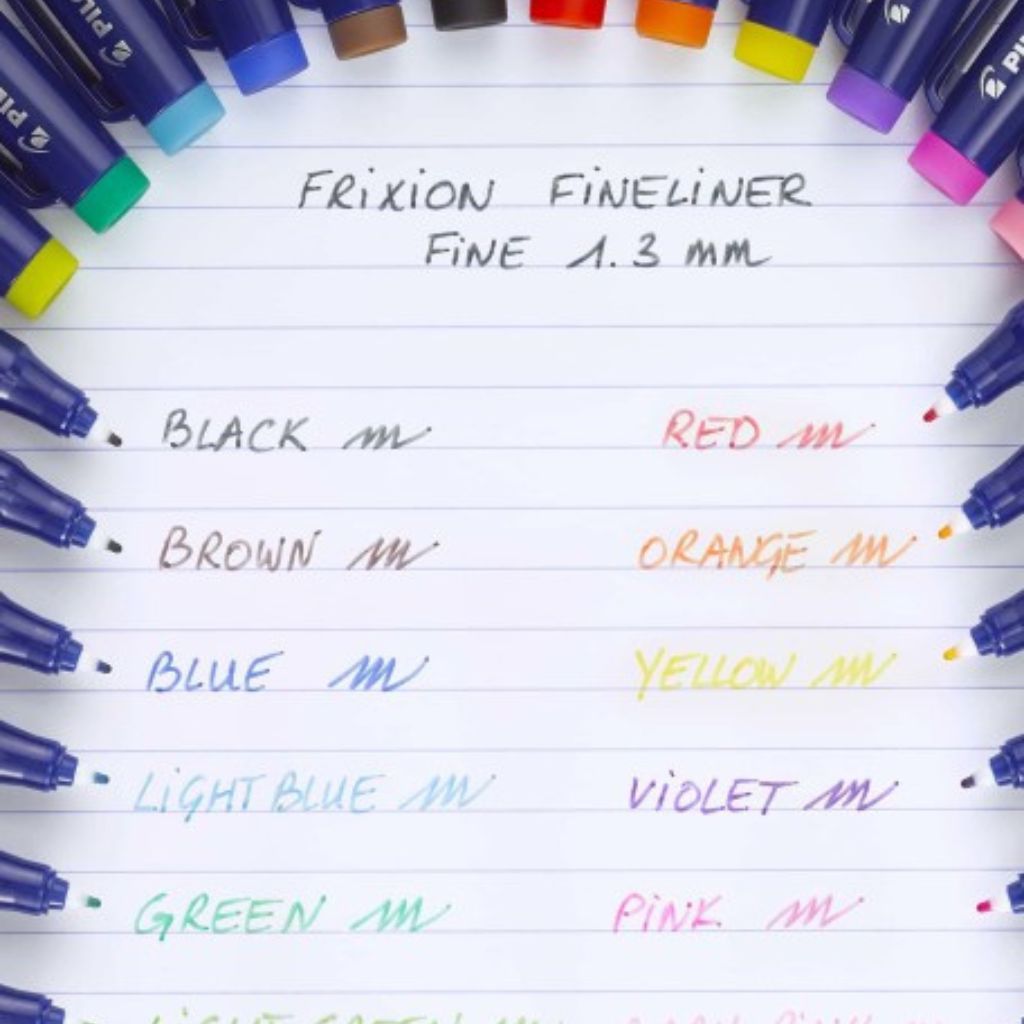 FRiXiON FiNELiNER
FiNE 1.3 mm
BLACK
RED
BROWN
ORANGE
BLUE
YELLOW
LiGHT BLUE
ViOLET
GREEN
PiNK
LiGHT GREEN
PiLOT